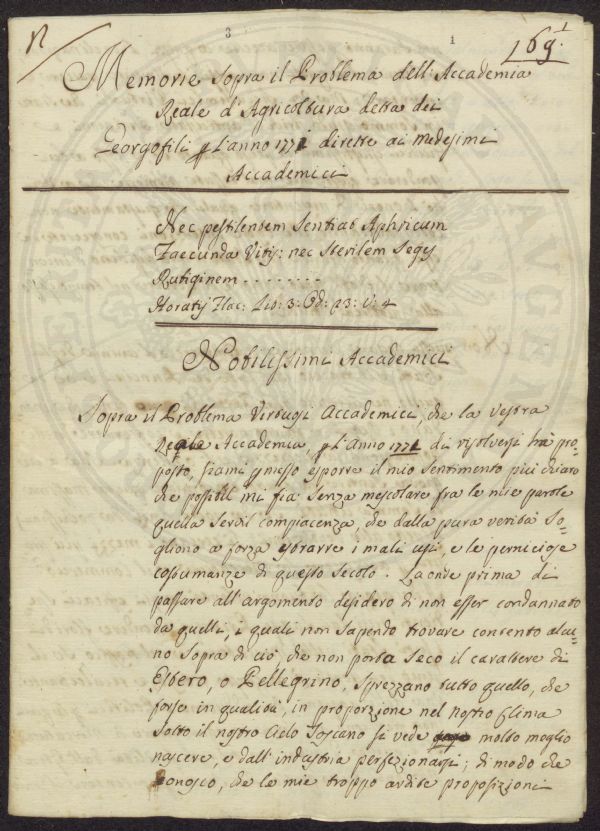 n
3
1
169.
1
Memorie Sopra il Problema dell'Accademia
Reale d'Agricoltura detta dei
Georgofili p l'anno 1771 dirette ai medesimi
Accademici
Nec pestilentem Sentiet Aphricum
Faecunda Vitis: nec Sterilem Seges
Rubiginem - - - - - - - -
Horatij Flac: Lib: 3: Od: 23: v: 4
Nobilissimi Accademici
Sopra il Problema Virtuosi Accademici, che la vostra
Reale Accademia, p l'Anno 1771 di risolversi hà pro=
posto, siami pmesso esporre il mio sentimento più chiaro
che possibil mi fia senza mescolare fra le mie parole
quella servil compiacenza, che dalla pura verità So=
gliono a forza estrarre i mali usi, e le perniciose
costumanze di questo secolo. Laonde prima di
passare all'argomento desidero di non esser condannato
da quelli, i quali non sapendo trovare contento alcu=
no sopra di ciò, che non porta seco il carattere di
Estero, o Pellegrino, sprezzano tutto quello, che
forse in qualità, in proporzione nel nostro Clima
sotto il nostro Cielo Toscano si vede molto meglio
nascere, e dall'industria perfezionarsi; di modo che
conosco, che le mie troppo ardite proposizioni